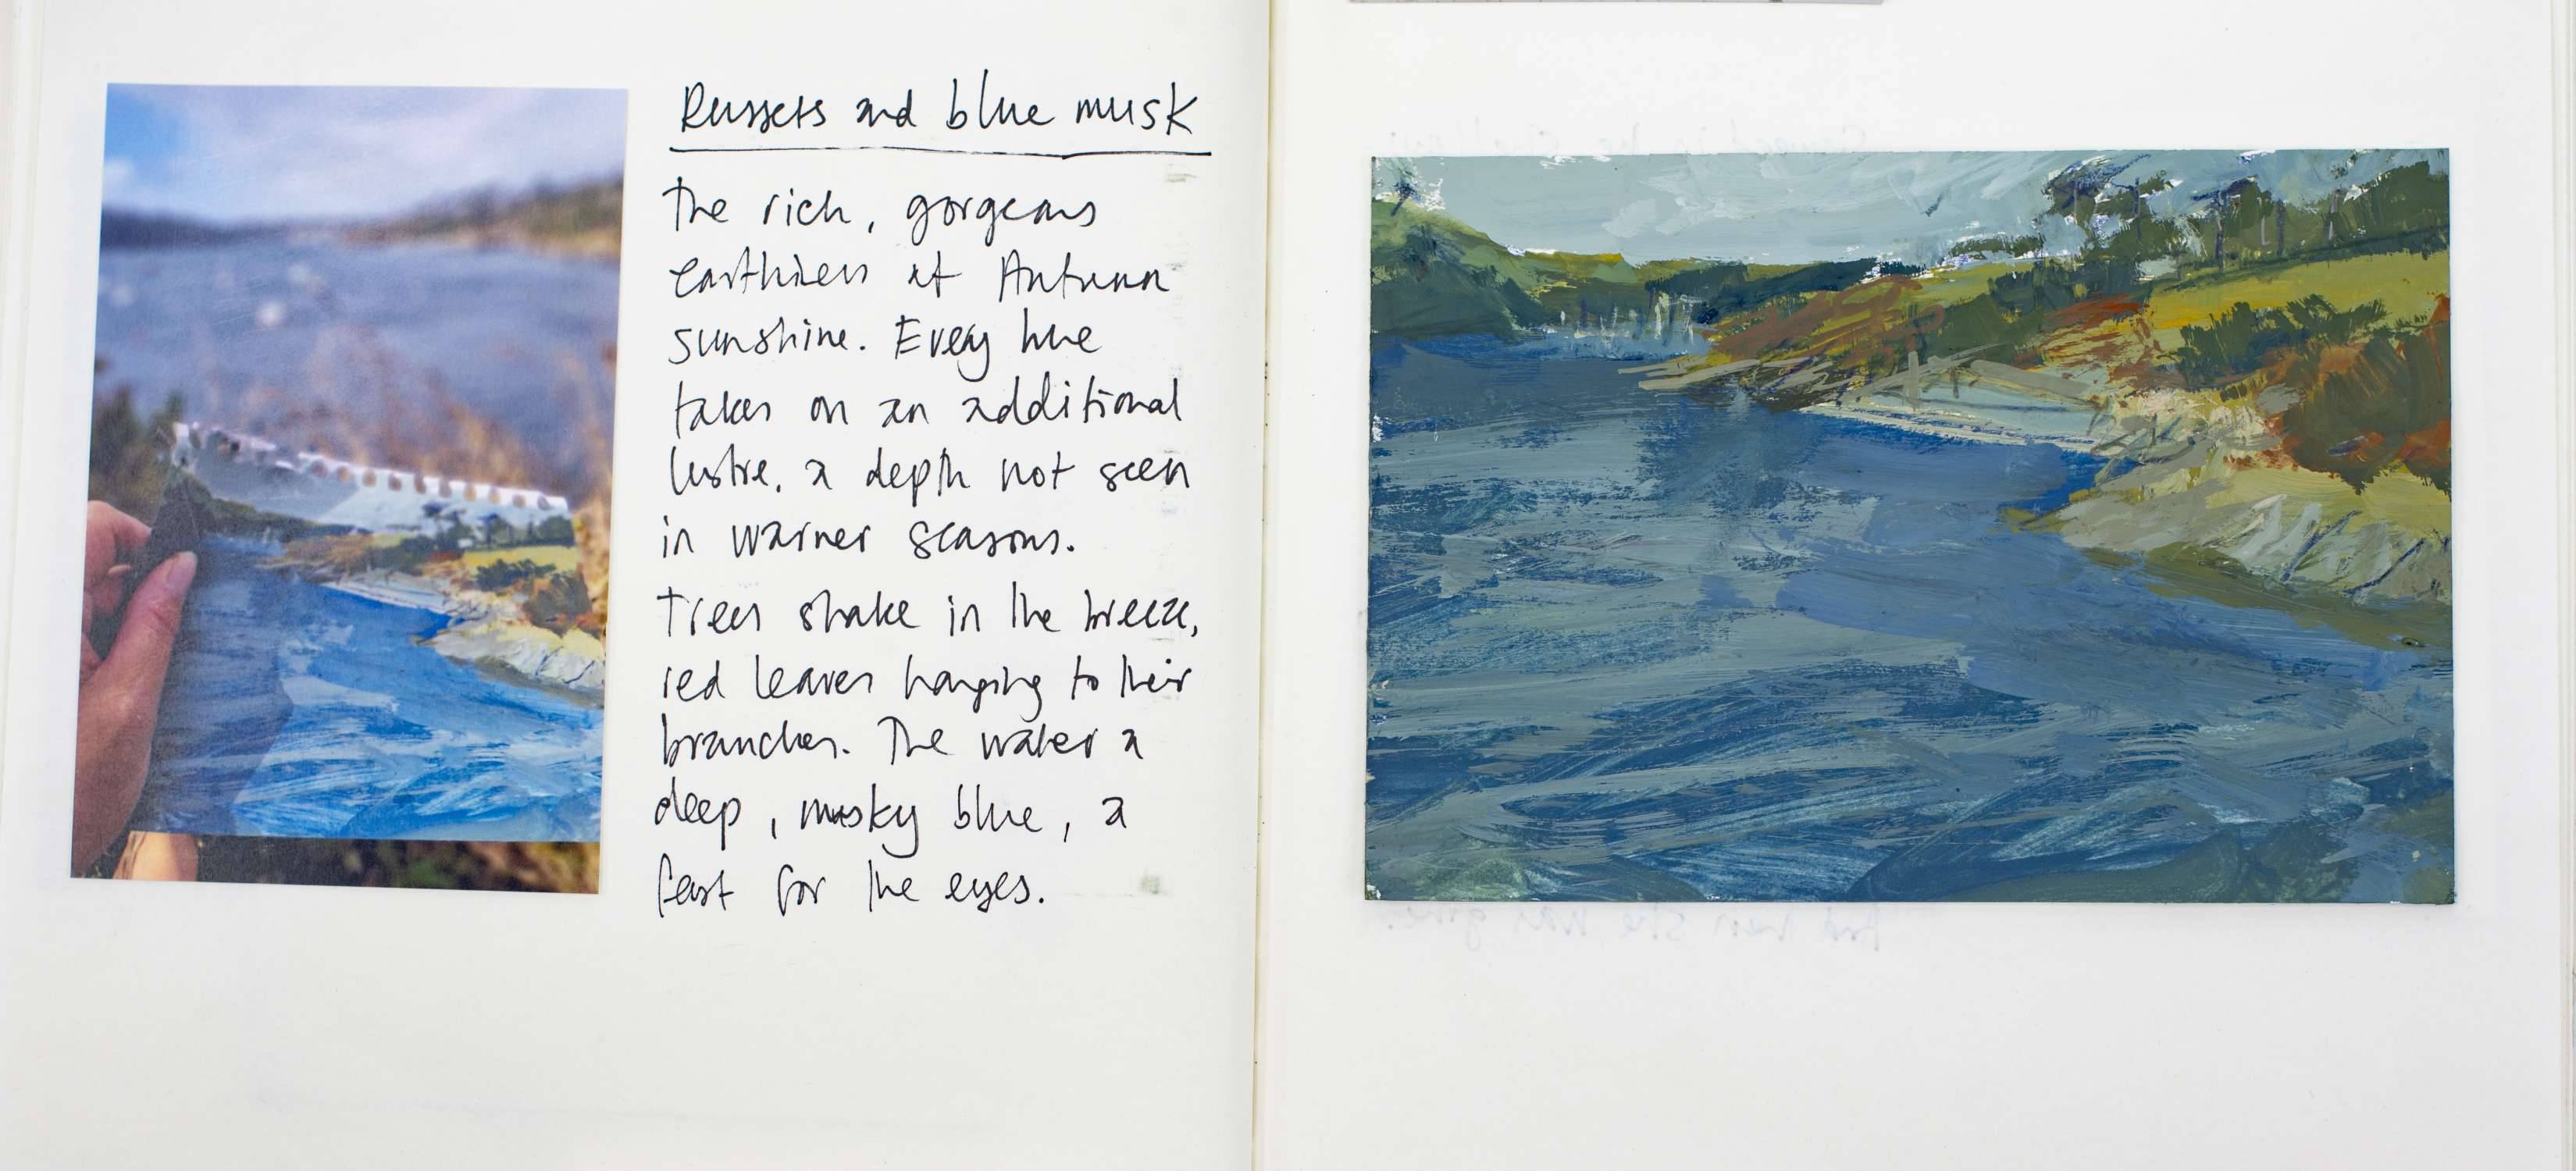 Russets and blue musk
The rich, gorgeous
earthiness of Autumn
sunshine. Every hue
takes on an additional
lustre, a depth not seen
in warmer seasons.
Trees shake in the breeze,
red leaves hanging to their
branches. The water a
deep, musky blue, a
feast for the eyes.
And then she was gone.